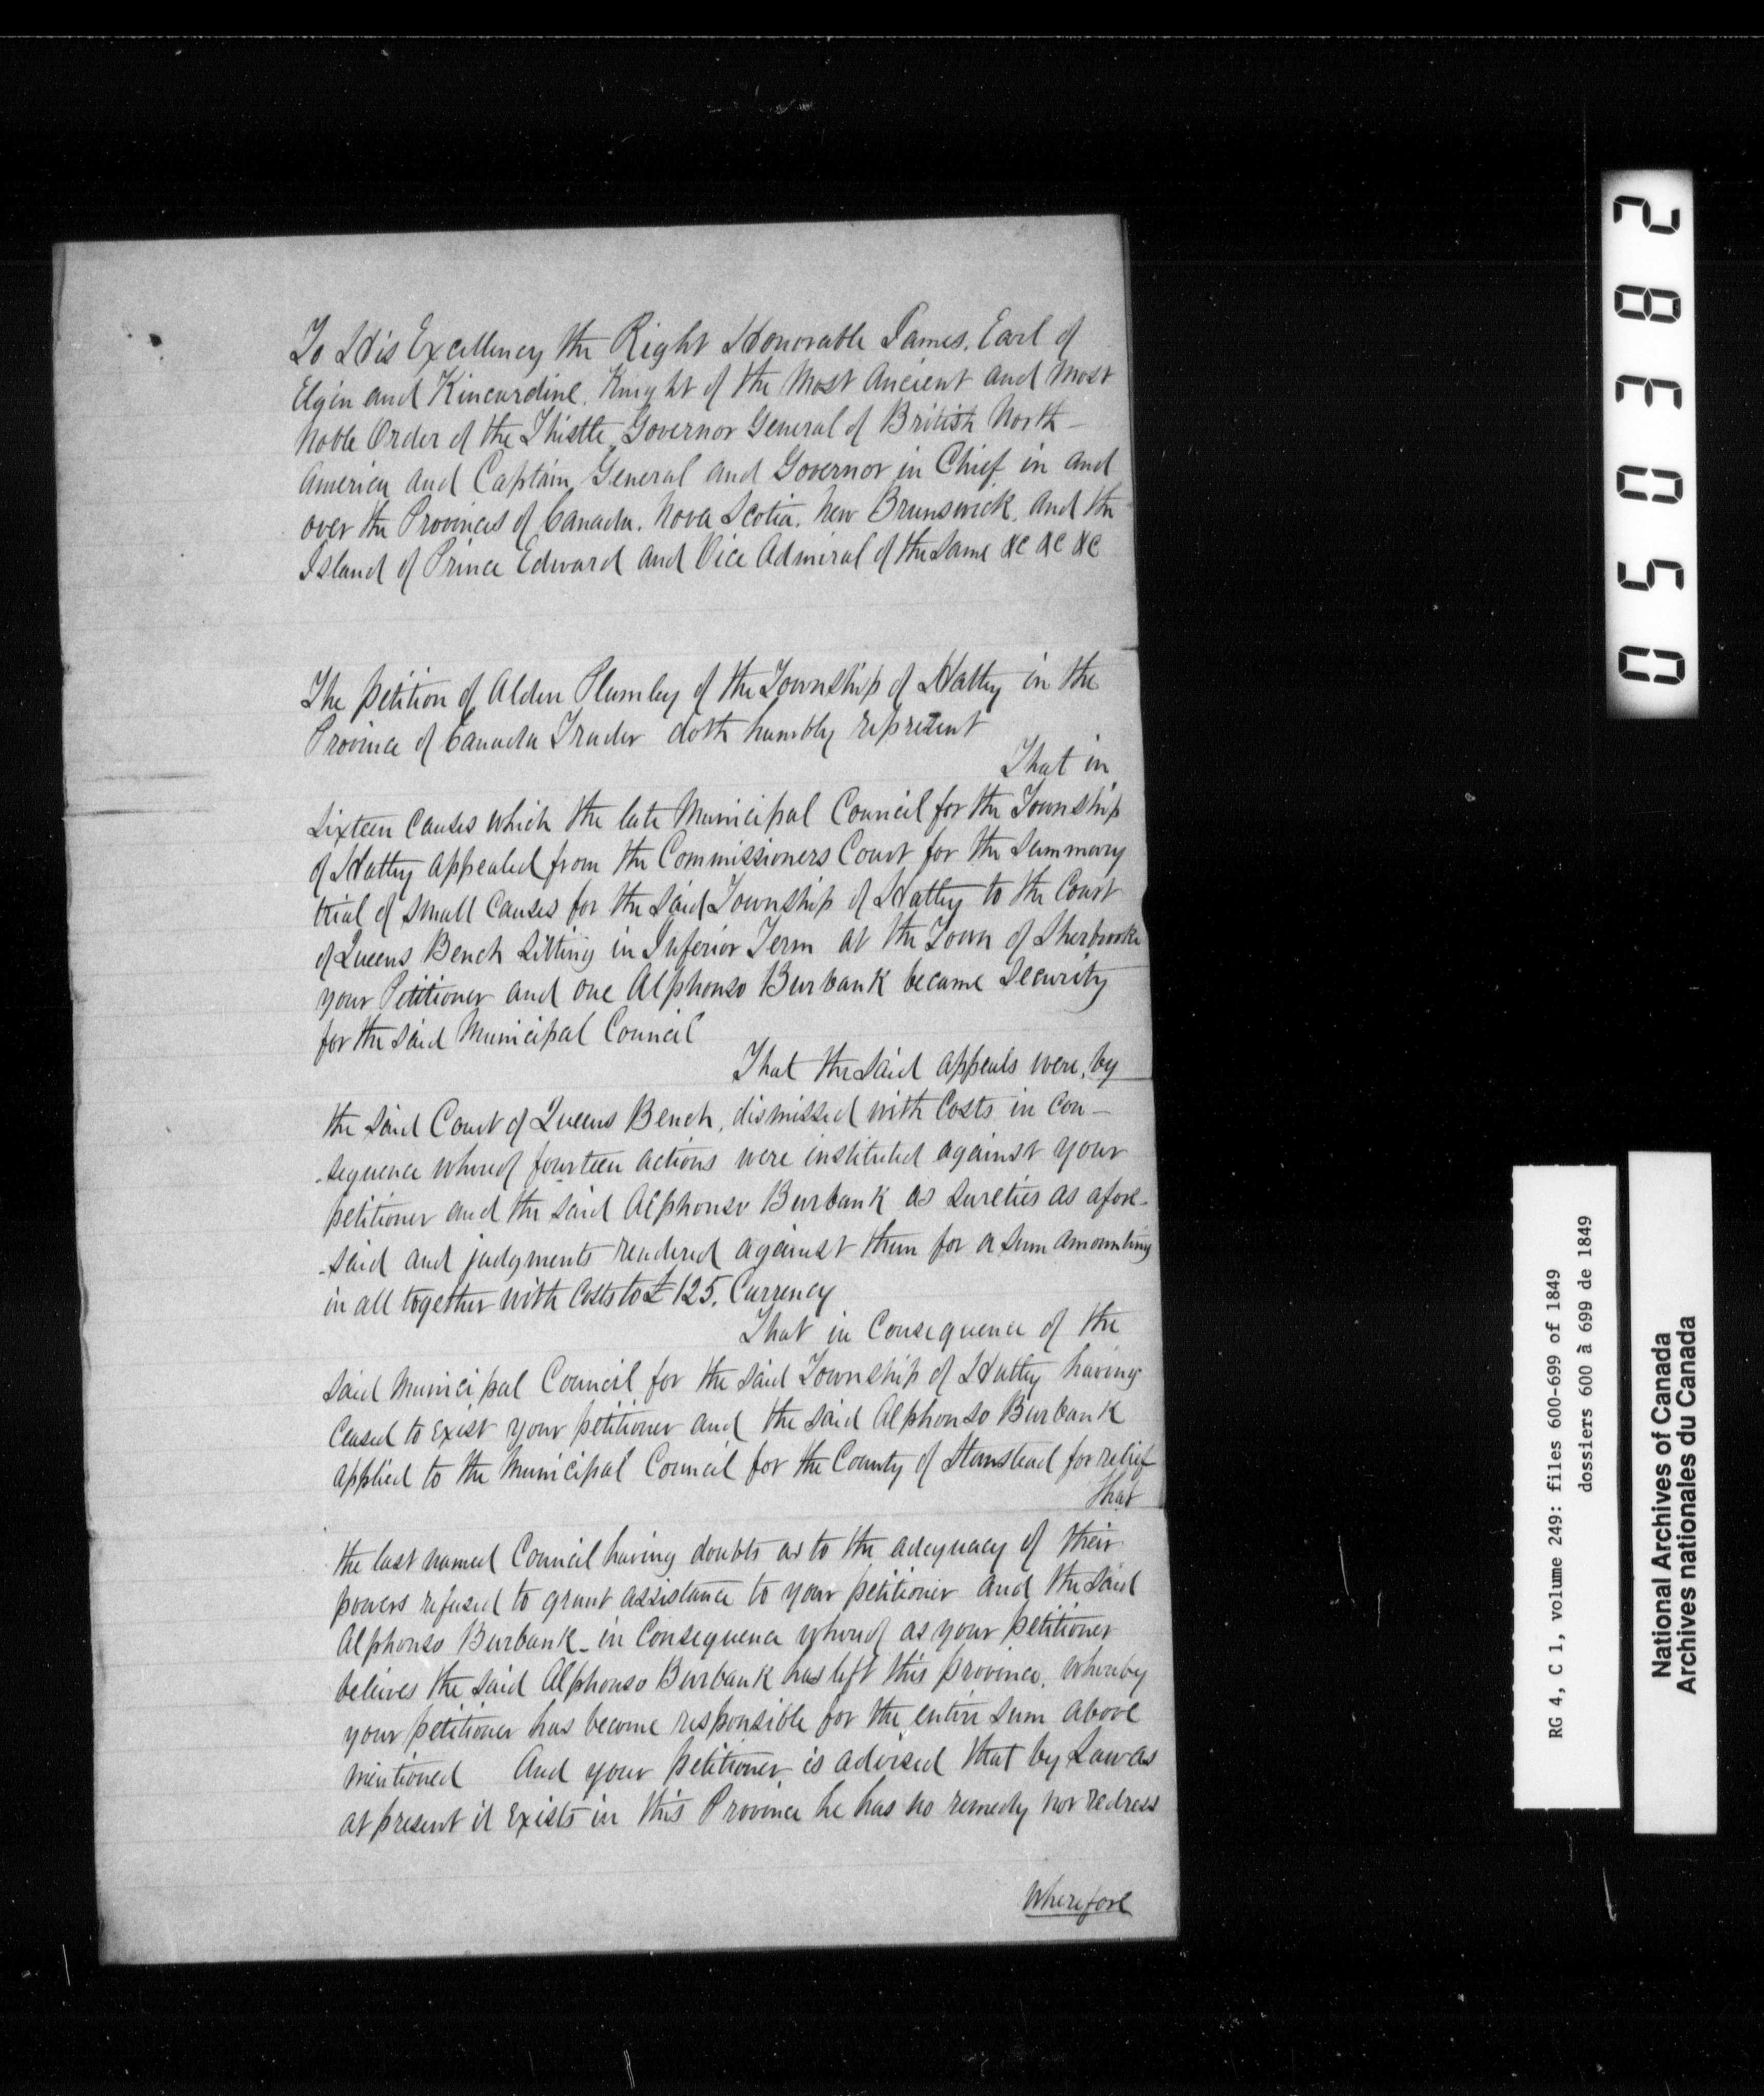 To His Excellency the Right Honorable James, Earl of
Elgin and Kincardine, Knight of the Most Ancient and Most
Noble Order of the Thistle, Governor General of British North-
America and Captain General and Governor in Chief in and
over the Provinces of Canada, Nova Scotia, New Brunswick, and the
Island of Prince Edward and Vice Admiral of the Same &c &c &c
The petition of Alden Plumley of the Township of Hatley in the
Province of Canada Trader doth humbly represent
That in
Sixteen Causes which the late Municipal Council for the Township
of Hatley appealed from the Commissioners Court for the Summary
trial of Small Causes for the said Township of Hatley to the Court
of Queens Bench Sitting in Inferior Term at the Town of Sherbrooke
your Petitioner and one Alphonso Burbank became Security
for the said Municipal Council
That the said appeals were, by
the said Court of Queens Bench, dismissed with Costs in con-
-sequence whereof fourteen actions were instituted against your
petitioner and the said Alphonso Burbank as Sureties as afore-
-said and judgments rendered against them for a Sum amounting
in all together with Costs to £125. Currency
That in Consequence of the
said Municipal Council for the said Township of Hatley having
Ceased to Exist your petitioner and the said Alphonso Burbank
applied to the Municipal Council for the County of Stanstead for relief
That
the last named Council having doubts as to the adequacy of their
powers refused to grant assistance to your petitioner and the said
Alphonso Burbank - in Consequence whereof as your petitioner
believes the said Alphonso Burbank has left this province, whereby
your petitioner has become responsible for the entire Sum above
mentioned And your petitioner is advised that by Law as
at present it Exists in this Province he has no remedy nor redress
Wherefore
050382
RG 4, C 1, volume 249: files 600-699 of 1849
dossiers 600 à 699 de 1849
National Archives of Canada
Archives nationales du Canada